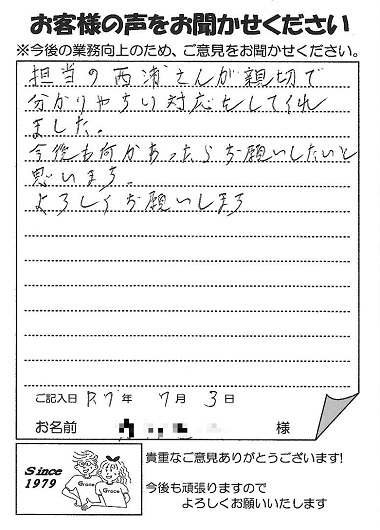 お客様の声をお聞かせください
※今後の業務向上のため、ご意見をお聞かせください。
担当の西浦さんが親切で
分かりやすい対応をしてくれ
ました。
今後も何かあったらお願いしたいと
思います。
よろしくお願いします
ご記入日 R.7年 7月 3日
お名前 様
Since
1979
Grace
Grace
貴重なご意見ありがとうございます!
今後も頑張りますので
よろしくお願いいたします